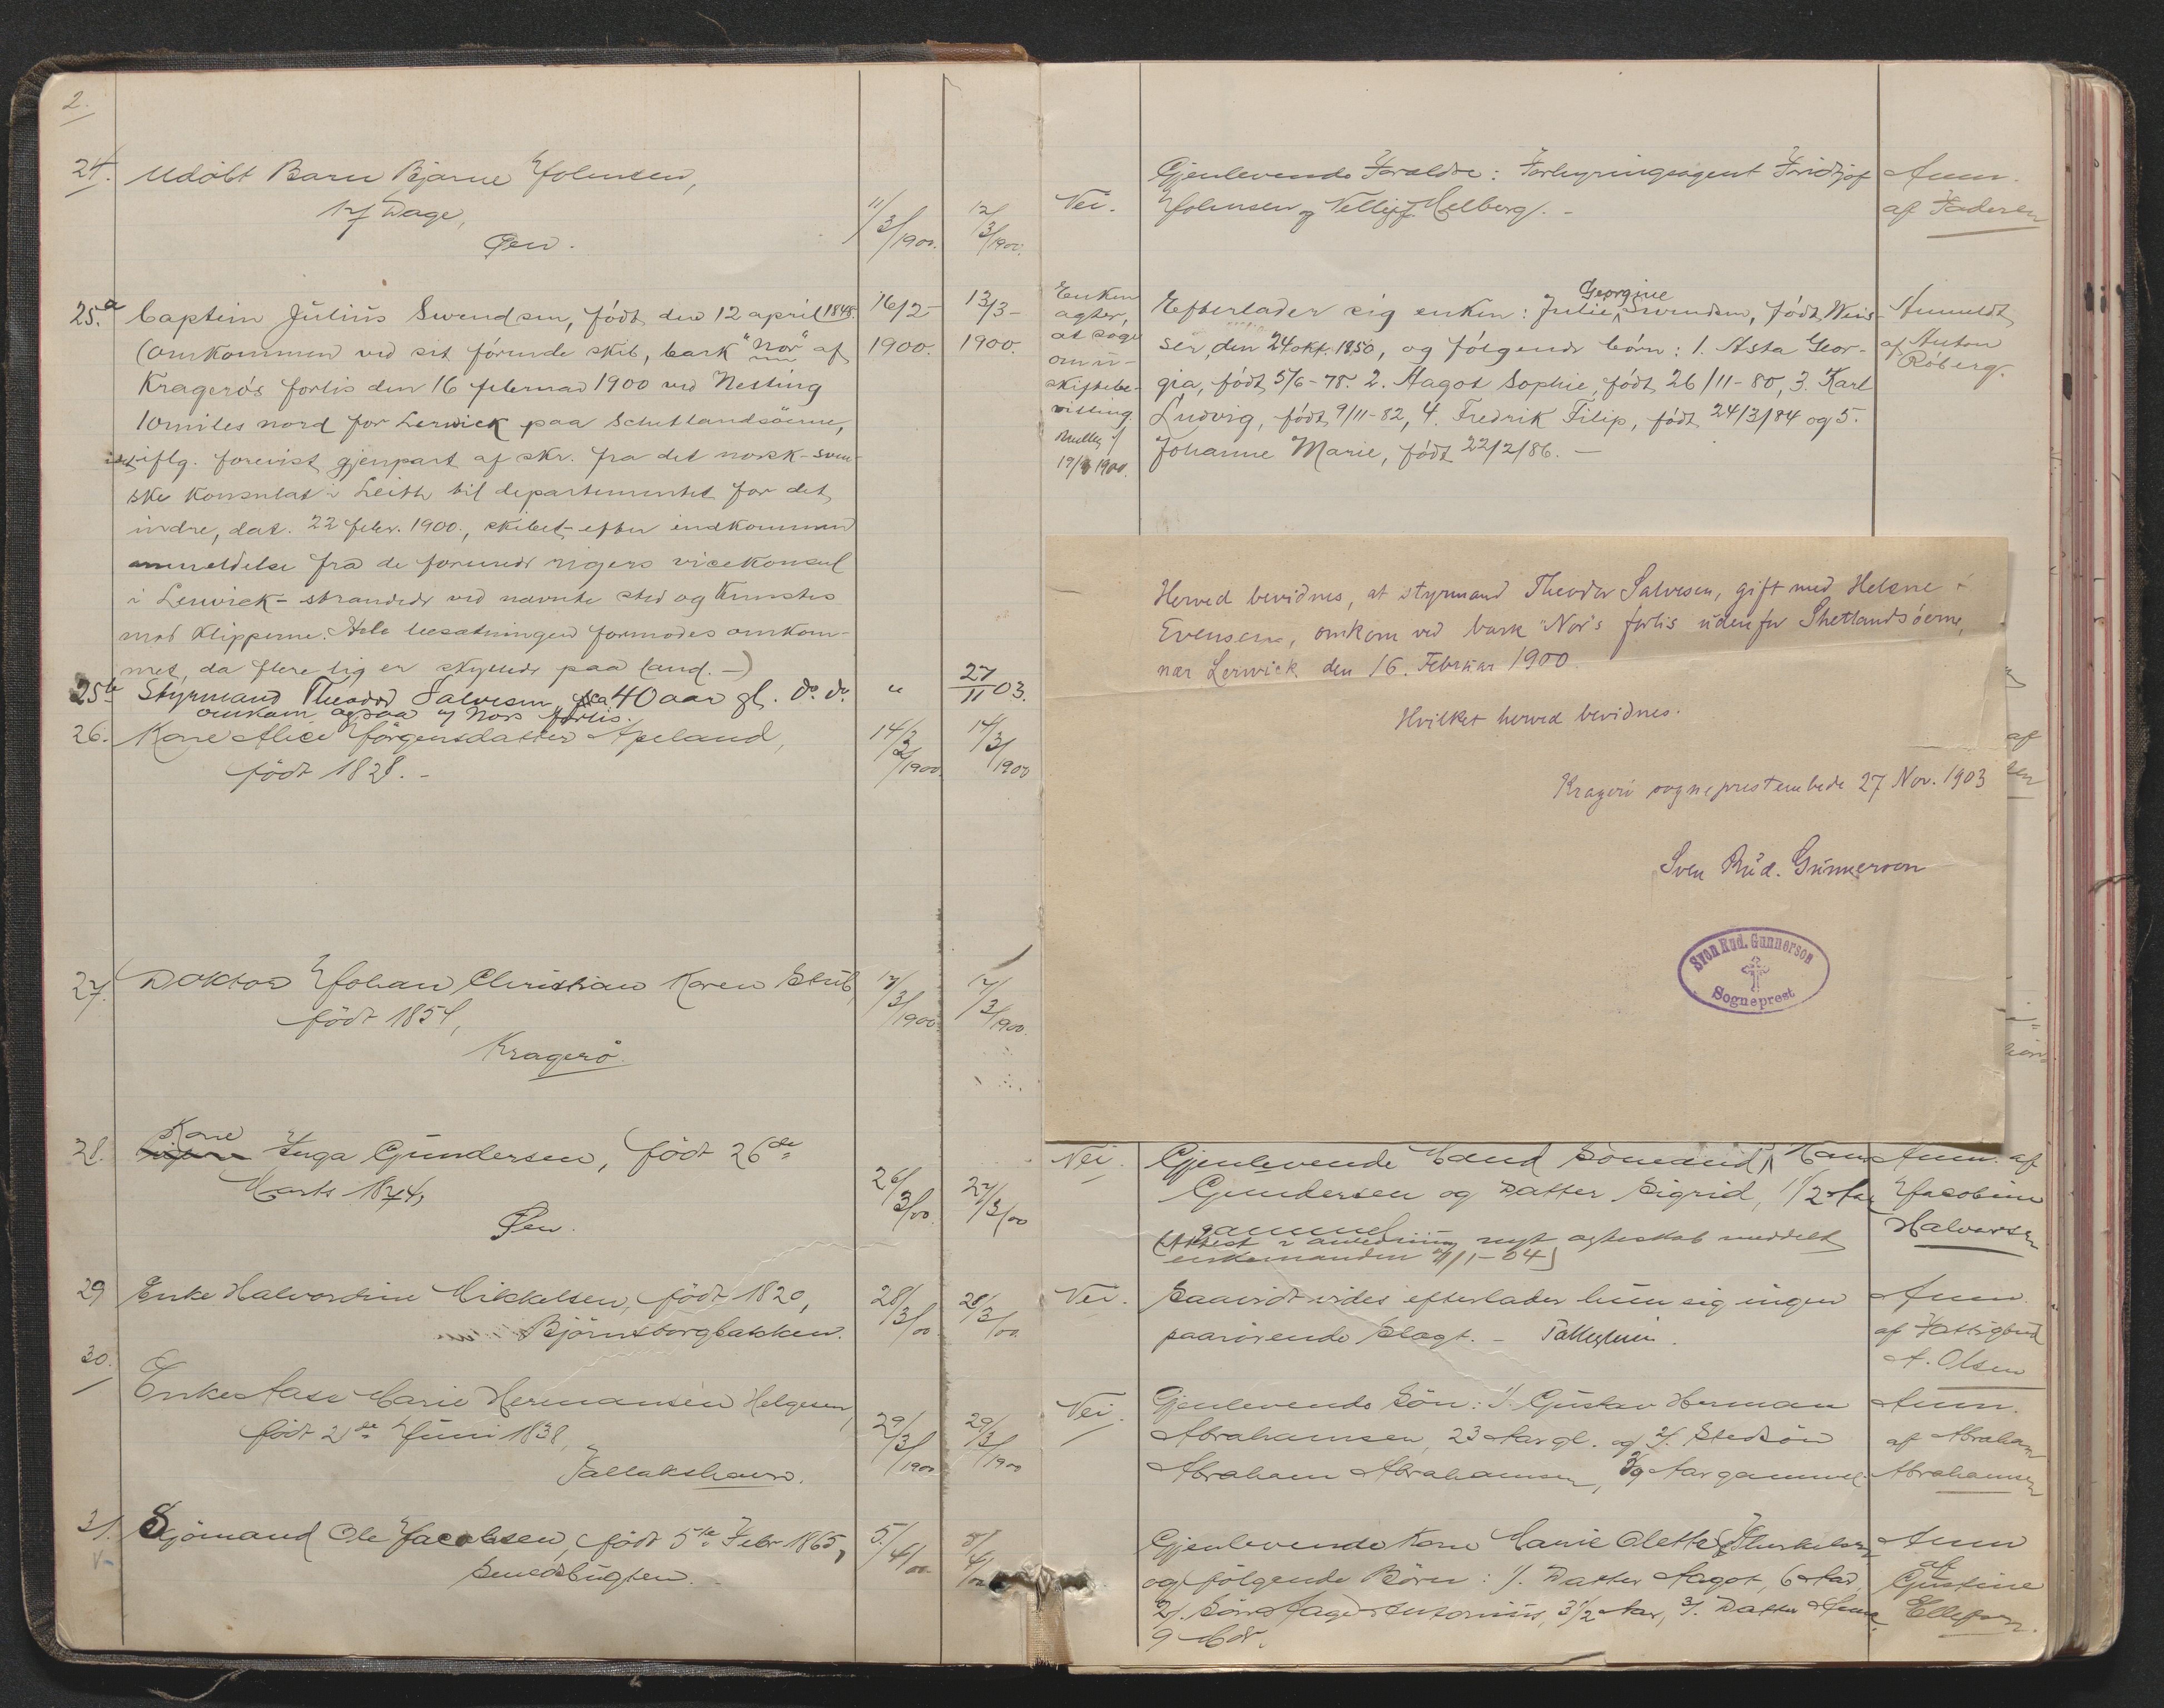 2.
24. Udöbt Barn Bjarne Johnsen,
17 Dage,
Öen.
11/3/1900. 12/3/1900.
25.a Captein Julius Swendsen, födt den 12 april 1848.
(omkommen ved sit förende skib, bark "Nor" af
Kragerös forlis den 16 februar 1900 ved Nesting
10 miles nord for Lerwick paa Schetlandsöerne,
iflg. forevist gjenpart af skr. fra det norsk-sven-
ske konsulat i Leith til departementet for det
indre, dat. 22 febr. 1900., skibet - efter indkommen
anmeldelse fra de forenede rigers vicekonsul
i Lerwick - strandede ved nævnte sted og knustes
mod klipperne. Hele besætningen formodes omkom-
met, da flere lig er skyllede paa land. -)
16/2- 1900. 13/3- 1900.
25b Styrmand Theodor Salvesen, ca 40 aar gl. do. do.
omkom ogsaa v/ Nors forlis.
" 27/11 03.
26. Kone Alice Jörgensdatter Apeland,
födt 1828. -
14/3/1900. 14/3/1900
27. Doktor Johan Christian Koren Stub,
födt 1854,
Kragerö.
17/3/1900. 17/3/1900.
28. Kone Inga Gundersen, födt 26de
Marts 1874,
Öen.
26/3/00. 27/3/00
29 Enke Halvordine Mikkelsen, födt 1820,
Björnsborgbakken.
28/3/00 28/3/00.
30. Enke Aase Marie Hermansen Helgesen,
födt 2de Juni 1838,
Tallakshavn.
29/3/1900 29/3/1900
31. Sjömand Ole Jacobsen, födt 5te Febr 1865,
Smedsbugten.
5/4/00.
Nei.
Gjenlevende Forældre: Forhyringsagent Fridtjof
Johnsen og Nelly f. Melberg. -
Anm.
af Faderen
Enken
agter,
at söge
om u-
skiftebe-
villing.
19/3 1900.
Efterlader sig enken: Julie Georgine Swendsen, födt Weis-
ser, den 24 okt. 1850, og fölgende börn: 1. Asta Geor-
gia, födt 5/6-78. 2. Aagot Sophie, födt 26/11-80, 3. Karl
Ludvig, födt 9/11-82, 4. Fredrik Filip, födt 24/3/84 og 5.
Johanne Marie, födt 22/2/86. -
Anmeldt
af Anton
Röberg.
Herved bevidnes, at styrmand Theodor Salvesen, gift med Helene
Evensen, omkom ved bark "Nor's forlis udenfor Shetlandsöerne,
nær Lerwick den 16. Februar 1900.
Hvilket herved bevidnes.
Kragerö sogneprestembede 27 Nov. 1903
Sven Rud. Gunnerson
Sven Rud. Gunnerson
Sogneprest
Nei. Gjenlevende Mand Sömand Hans
Gundersen og Datter Sigrid, 1 1/2 Aar
gammel
(Attest i anledning nyt ægteskab meddelt
enkemanden 4/1-04)
Anm. af
Jacobine
Halvorsen
Nei. Saavidt vides efterlader hun sig ingen
paarörende Slægt. -
Anm.
af Fattigbud
A. Olsen
Nei. Gjenlevende Sön: 1/. Gustav Herman
Abrahamsen, 23 Aar gl. og 2/. Stedsön
Abraham Abrahamsen, 39 Aar gammel.
Anm.
af Abraham
Abrahamsen
Gjenlevende Kone Marie Olette f. Thorkelsen
og fölgende Börn: 1/. Datter Aagot, 6 Aar,
2/. Sön Aage Antonius, 3 1/2 Aar, 3/. Datter Anna
9 Mdr.
Anm
af
Gustine
Ellefsen.